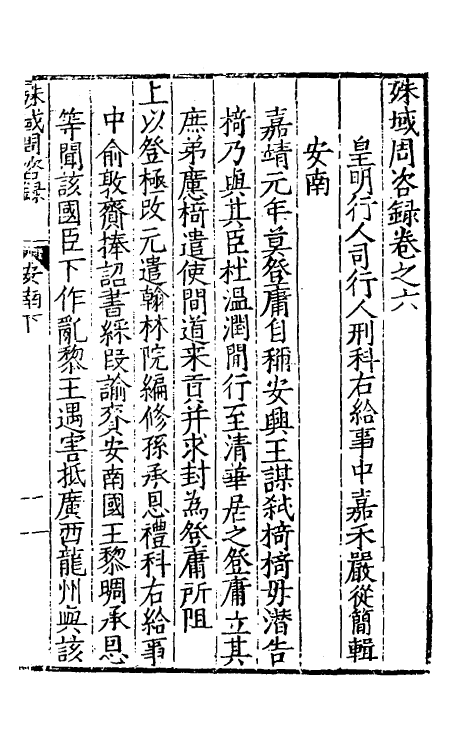 殊域周咨録卷之六
皇明行人司行人刑科右給事中嘉禾嚴從簡輯
安南
嘉靖元年莫登庸自稱安興王謀弑椅椅毋潜告
椅乃與其臣杜溫潤間行至清華居之登庸立其
庶弟廣椅遣使間道來貢并求封為登庸所阻
上以登極改元遣翰林院編修孫承恩禮科右給事
中俞敦齎捧詔書綵叚諭来安南國王黎晭承恩
等聞該國臣下作亂黎王遇害抵廣西龍州與該
殊域周咨録
安南下
一